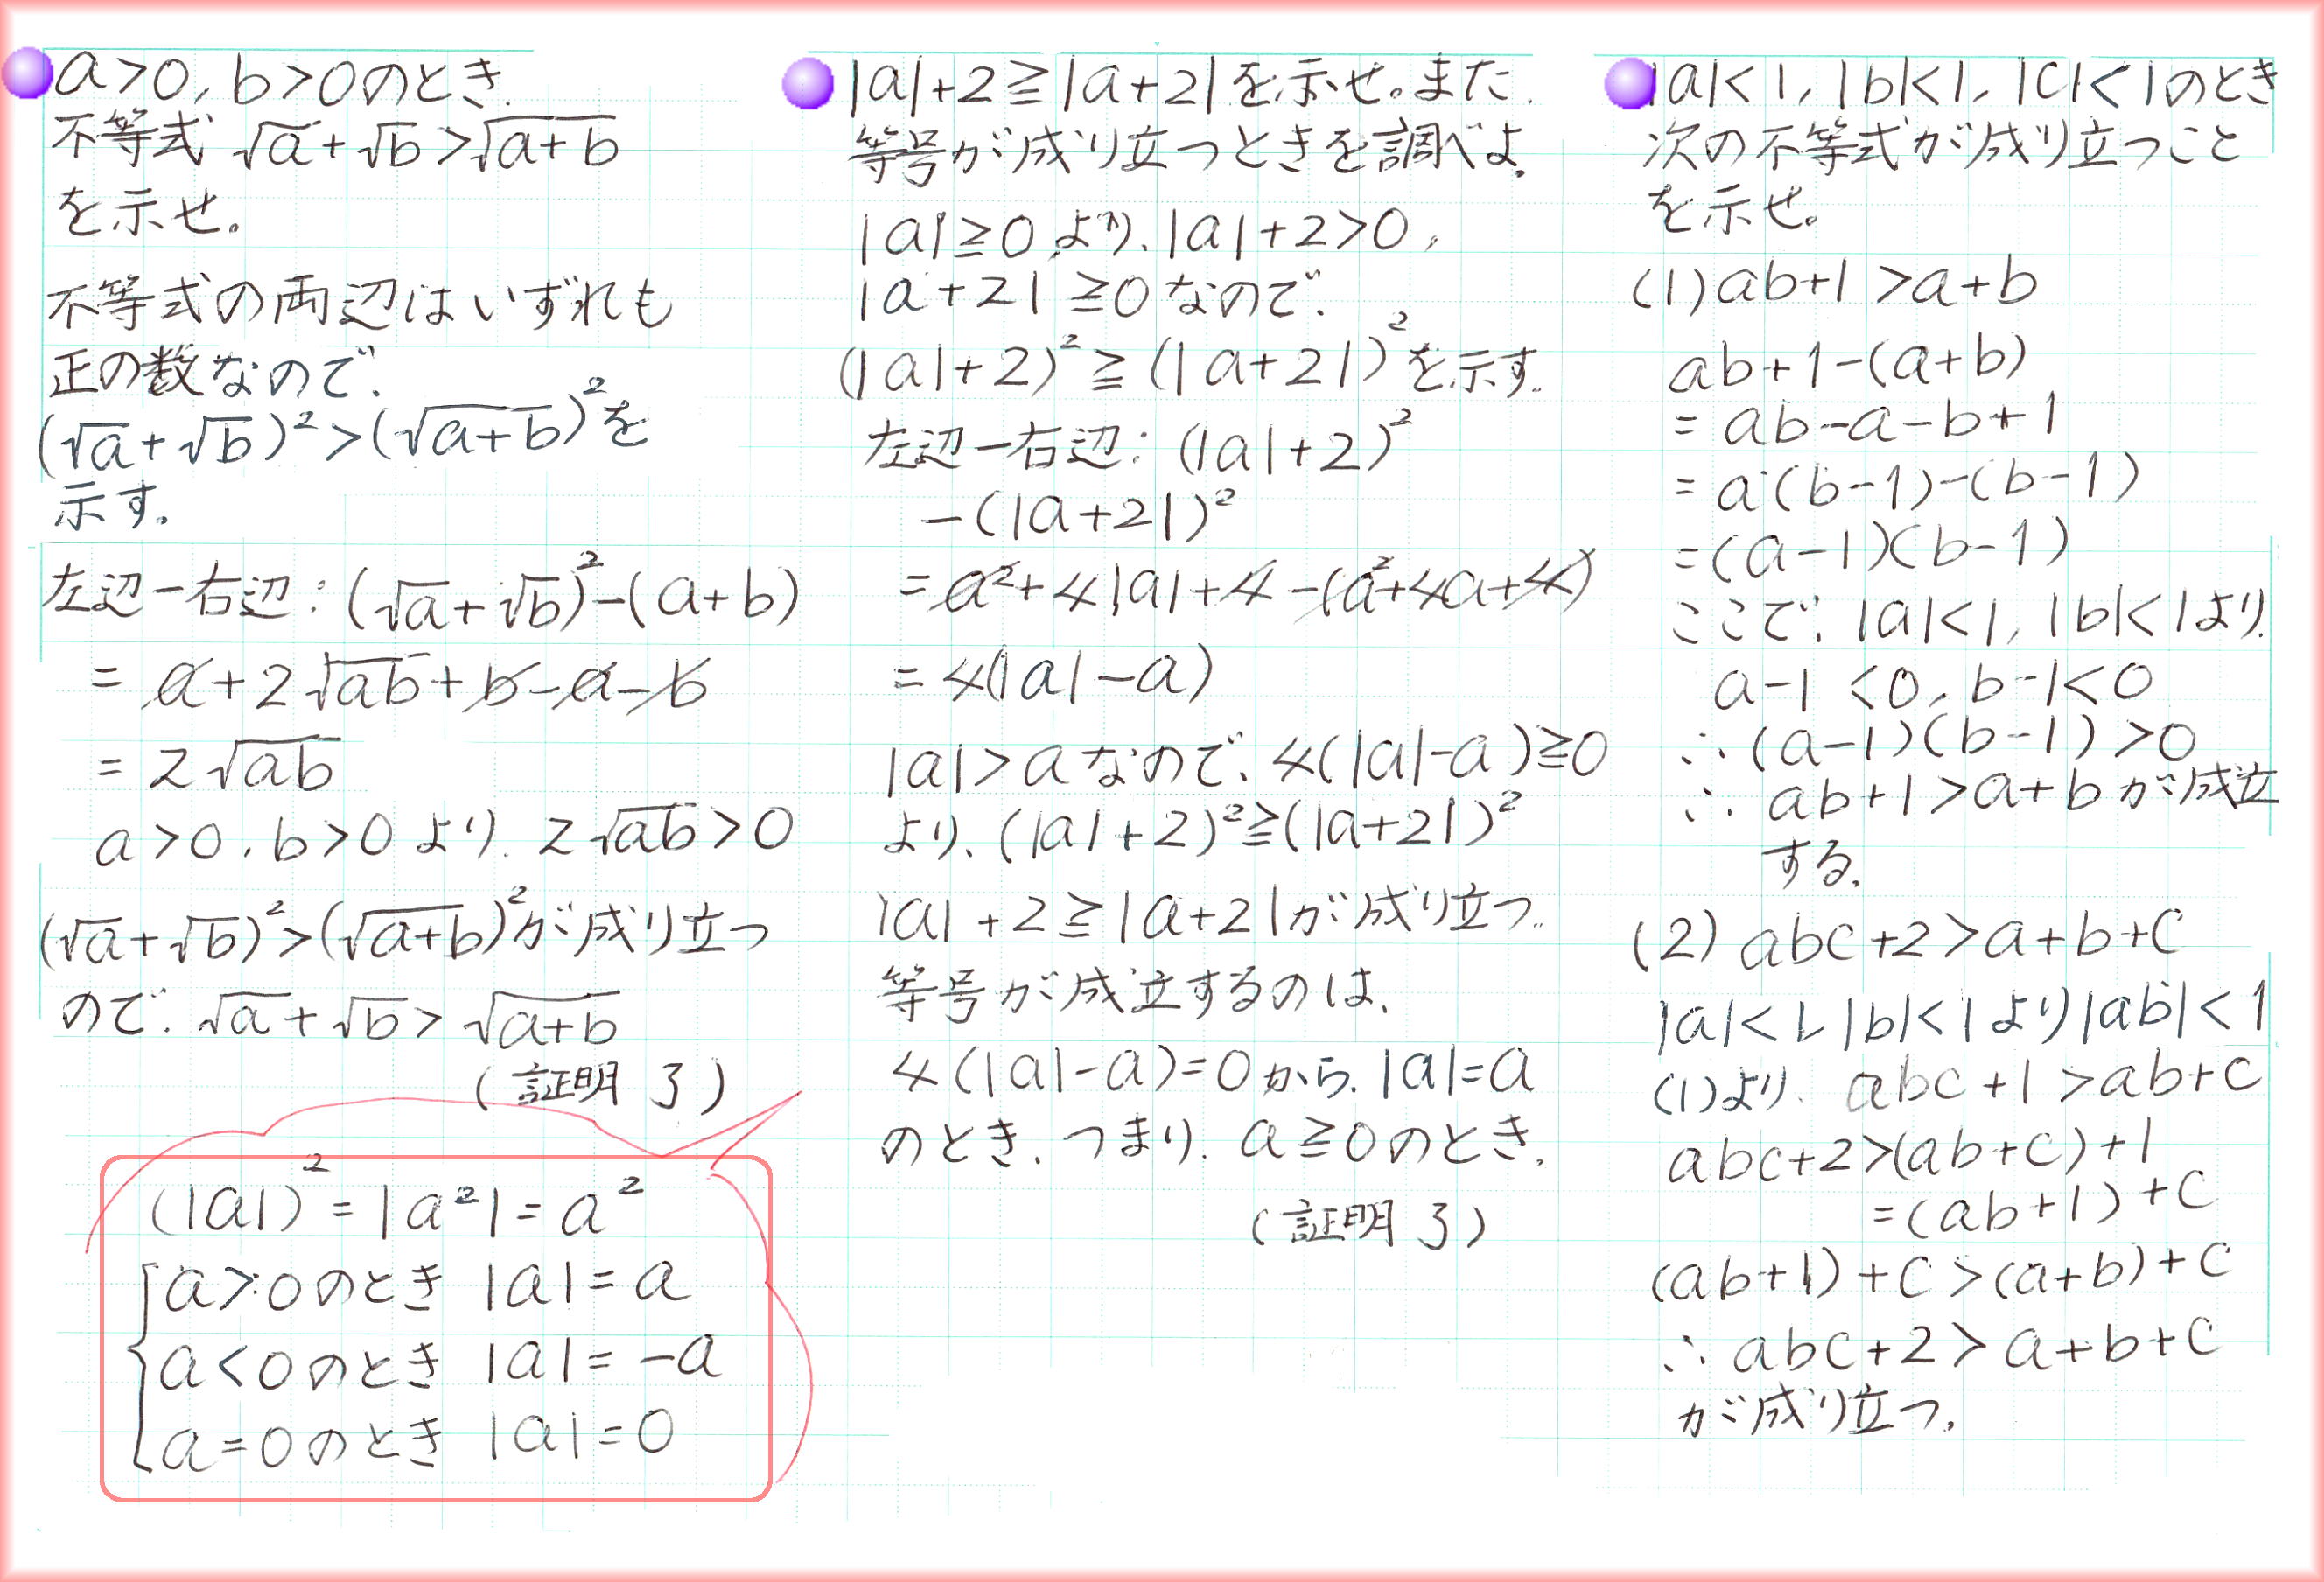 a>0, b>0のとき、
不等式 √a+√b>√(a+b)
を示せ。
不等式の両辺はいずれも
正の数なので、
(√a+√b)²>(√(a+b))²を
示す。
左辺-右辺:(√a+√b)²-(a+b)
=a+2√(ab)+b-a-b
=2√(ab)
a>0, b>0より、2√(ab)>0
(√a+√b)²>(√(a+b))²が成り立つ
ので、√a+√b>√(a+b)
(証明了)
(|a|)²=|a²|=a²
a>0のとき |a|=a
a<0のとき |a|=-a
a=0のとき |a|=0
|a|+2≧|a+2|を示せ。また、
等号が成り立つときを調べよ。
|a|≧0より、|a|+2>0,
|a+2|≧0なので、
(|a|+2)²≧(|a+2|)²を示す。
左辺-右辺:(|a|+2)²
-(|a+2|)²
=a²+4|a|+4-(a²+4a+4)
=4(|a|-a)
|a|>aなので、4(|a|-a)≧0
より、(|a|+2)²≧(|a+2|)²
|a|+2≧|a+2|が成り立つ。
等号が成立するのは、
4(|a|-a)=0から、|a|=a
のとき、つまり、a≧0のとき、
(証明了)
|a|<1, |b|<1, |c|<1のとき
次の不等式が成り立つこと
を示せ。
(1)ab+1>a+b
ab+1-(a+b)
=ab-a-b+1
=a(b-1)-(b-1)
=(a-1)(b-1)
ここで、|a|<1, |b|<1より、
a-1<0, b-1<0
∴(a-1)(b-1)>0
∴ab+1>a+bが成立
する。
(2)abc+2>a+b+c
|a|<1, |b|<1より|ab|<1
(1)より、abc+1>ab+c
abc+2>(ab+c)+1
=(ab+1)+c
(ab+1)+c>(a+b)+c
∴abc+2>a+b+c
が成り立つ。